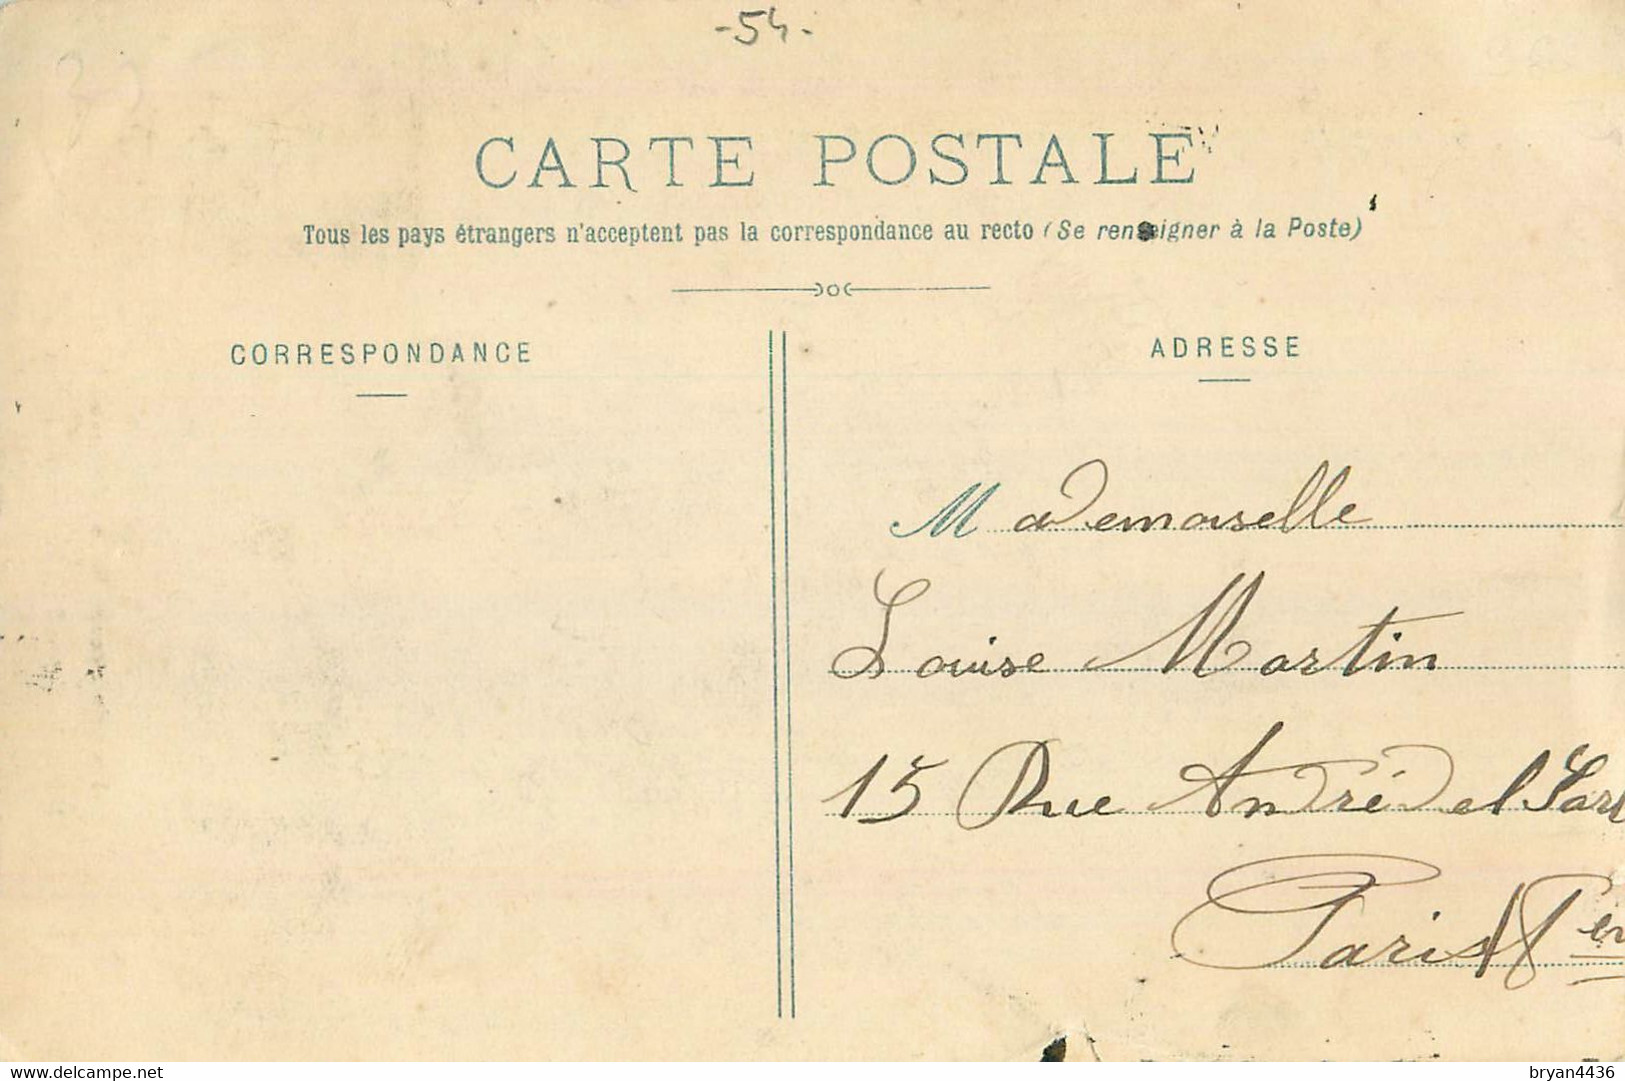 -54-
CARTE POSTALE
Tous les pays étrangers n'acceptent pas la correspondance au recto (Se renseigner à la Poste)
CORRESPONDANCE
ADRESSE
Mademoiselle
Louise Martin
15 Rue André del Sar
Paris
delcampe.net
bryan4436